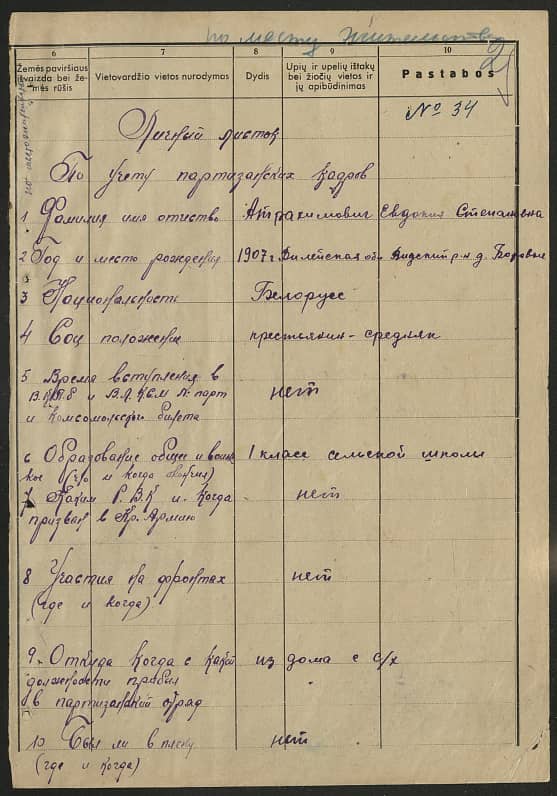 по месту жительства
21
6 7 8 9 10
Žemės paviršiaus išvaizda bei žemės rūšis
Vietovardžio vietos nurodymas
Dydis
Upių ir upelių ištakų bei žiočių vietos ir jų apibūdinimas
Pastabos
№ 34
Личный листок
По учету партизанских кадров
1 Фамилия имя отчество Евдокия Степановна
2 Год и место рождения 1907 г Вилейская обл Видский р-н д.
3 Национальность Белорусс
4 Соц положение крестьянин - середняк
5 Время вступления в
В.К.П.б и В.Л.К.С.М № парт нет
и комсомольского билета
6 Образование общее и воен 1 класс сельской школы
ное (что и когда окончил)
7 Каким Р.В.К и когда нет
призван в Кр. Армию
8 Участия на фронтах нет
(где и когда)
9. Откуда когда с какой из дома с с/х
должности прибыл
в партизанский отряд
10 Был ли в плену нет
(где и когда)